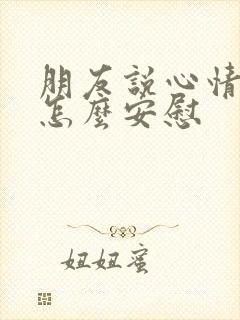 朋友說心情
怎麼安慰
妞妞蜜